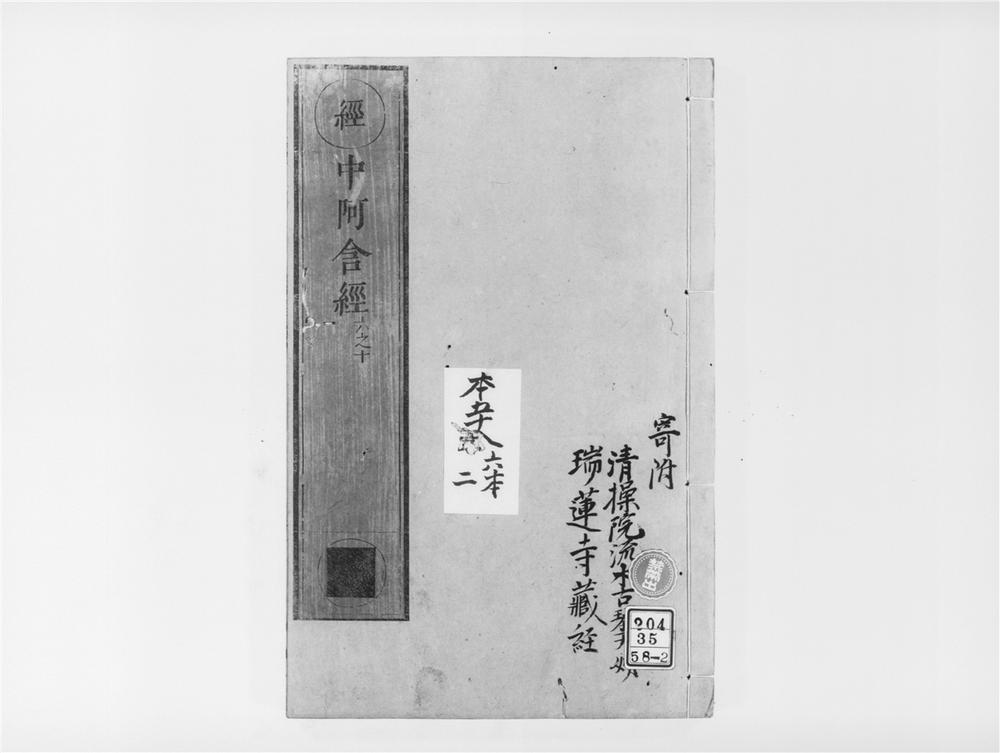 寄附
清操院流
瑞蓮寺藏経
禁帶出
204
35
58-2
六本
二
經
中阿含經
六之十